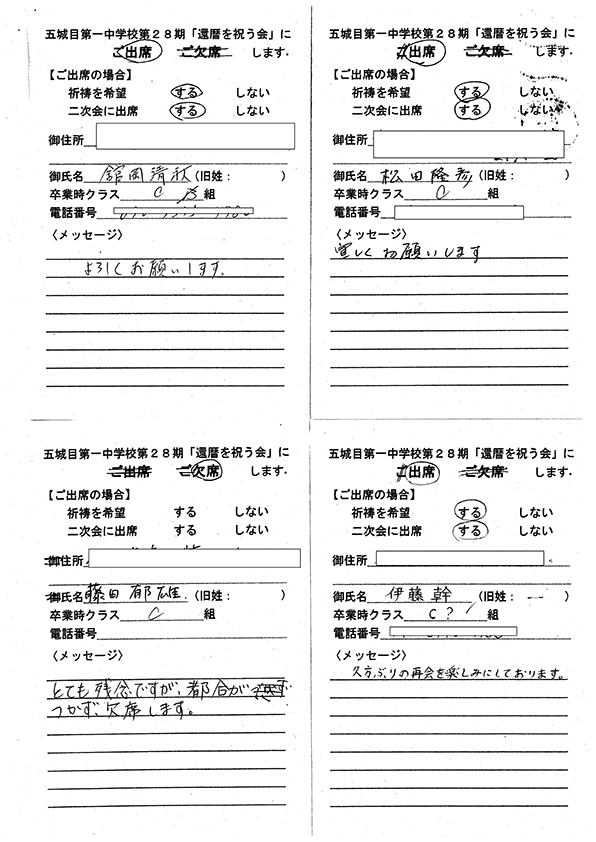 五城目第一中学校第２８期「還暦を祝う会」に
ご出席 ご欠席 します.
【ご出席の場合】
祈祷を希望 する しない
二次会に出席 する しない
御住所
御氏名 舘岡清秋 (旧姓： )
卒業時クラス C 組
電話番号
〈メッセージ〉
よろしくお願いします.
五城目第一中学校第２８期「還暦を祝う会」に
ご出席 ご欠席 します.
【ご出席の場合】
祈祷を希望 する しない
二次会に出席 する しない
御住所
御氏名 松田隆彦 (旧姓： )
卒業時クラス C 組
電話番号
〈メッセージ〉
宜しくお願いします
五城目第一中学校第２８期「還暦を祝う会」に
ご出席 ご欠席 します.
【ご出席の場合】
祈祷を希望 する しない
二次会に出席 する しない
御住所
御氏名 藤田郁雄 (旧姓： )
卒業時クラス C 組
電話番号
〈メッセージ〉
とても残念ですが、都合が
つかず、欠席します。
五城目第一中学校第２８期「還暦を祝う会」に
ご出席 ご欠席 します.
【ご出席の場合】
祈祷を希望 する しない
二次会に出席 する しない
御住所
御氏名 伊藤幹 (旧姓： ― )
卒業時クラス C？ 組
電話番号
〈メッセージ〉
久方ぶりの再会を楽しみにしております。